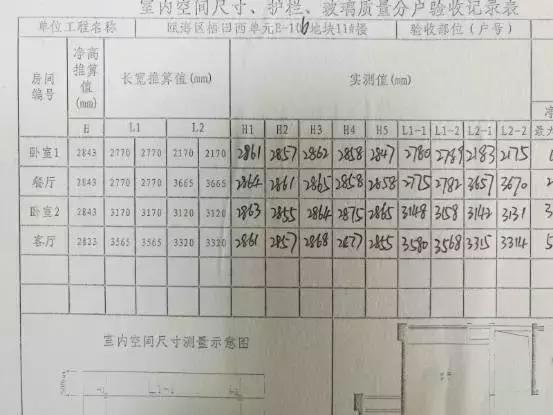 室内空间尺寸、护栏、玻璃质量分户验收记录表
单位工程名称 瓯海区梧田西单元E-16地块11#楼 验收部位(户号)
房间编号 净高推算值(mm) 长宽推算值(mm) 实测值(mm)
H L1 L2 H1 H2 H3 H4 H5 L1-1 L1-2 L2-1 L2-2 最大
卧室1 2843 2770 2770 2170 2170 2861 2857 2862 2858 2847 2780 2789 2183 2175
餐厅 2843 2770 2770 3665 3665 2864 2861 2865 2858 2858 2775 2782 3657 3670
卧室2 2843 3170 3170 3120 3120 2863 2855 2864 2875 2865 3148 3158 3142 3131
客厅 2823 3565 3565 3320 3320 2861 2857 2868 2877 2855 3580 3568 3315 3314
室内空间尺寸测量示意图